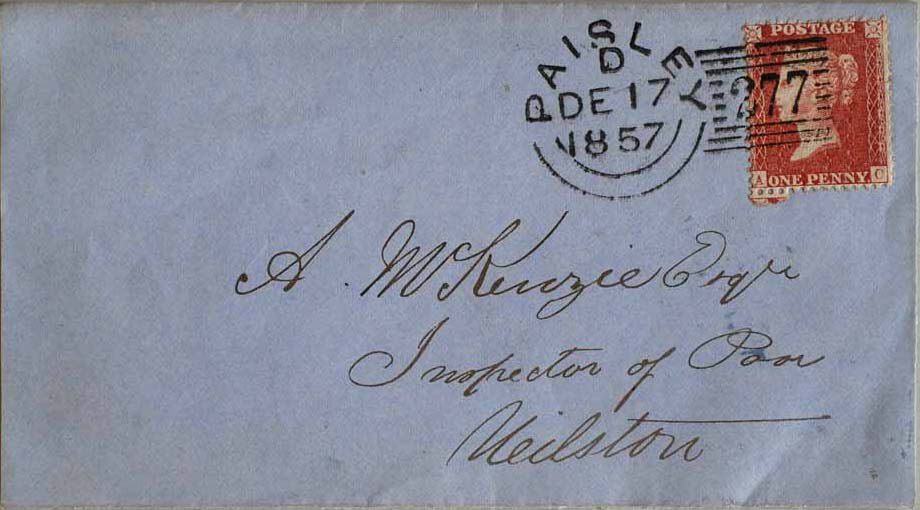 PAISLEY
D
DE 17
1857
277
POSTAGE
A ONE PENNY. C
A. McKenzie Esqre
Inspector of Poor
Neilston